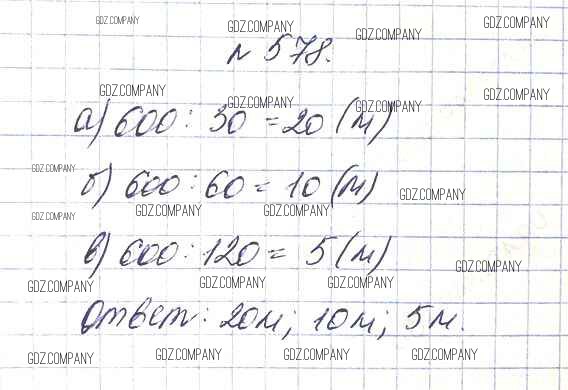 GDZ.COMPANY GDZ.COMPANY GDZ.COMPANY GDZ.COMPANY
№ 578.
GDZ.COMPANY GDZ.COMPANY GDZ.COMPANY GDZ.COMPANY
а) 600 : 30 = 20 (м)
GDZ.COMPANY
б) 600 : 60 = 10 (м)
GDZ.COMPANY
GDZ.COMPANY GDZ.COMPANY GDZ.COMPANY
в) 600 : 120 = 5 (м)
GDZ.COMPANY
GDZ.COMPANY GDZ.COMPANY GDZ.COMPANY
Ответ: 20м; 10м; 5м.
GDZ.COMPANY GDZ.COMPANY GDZ.COMPANY GDZ.COMPANY